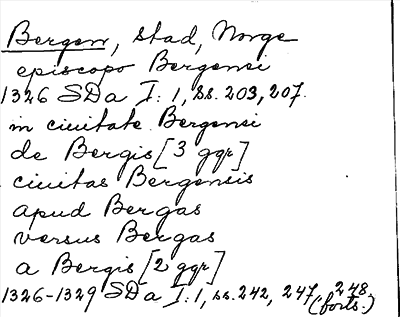 Bergen, stad, Norge
episcopo Bergensi
1326 SDa I:1, ss. 203, 207.
in ciuitate Bergensi
de Bergis [3 ggr]
ciuitas Bergensis
apud Bergas
versus Bergas
a Bergis [2 ggr]
1326-1329 SDa I:1, ss. 242, 247, 248
(forts.)